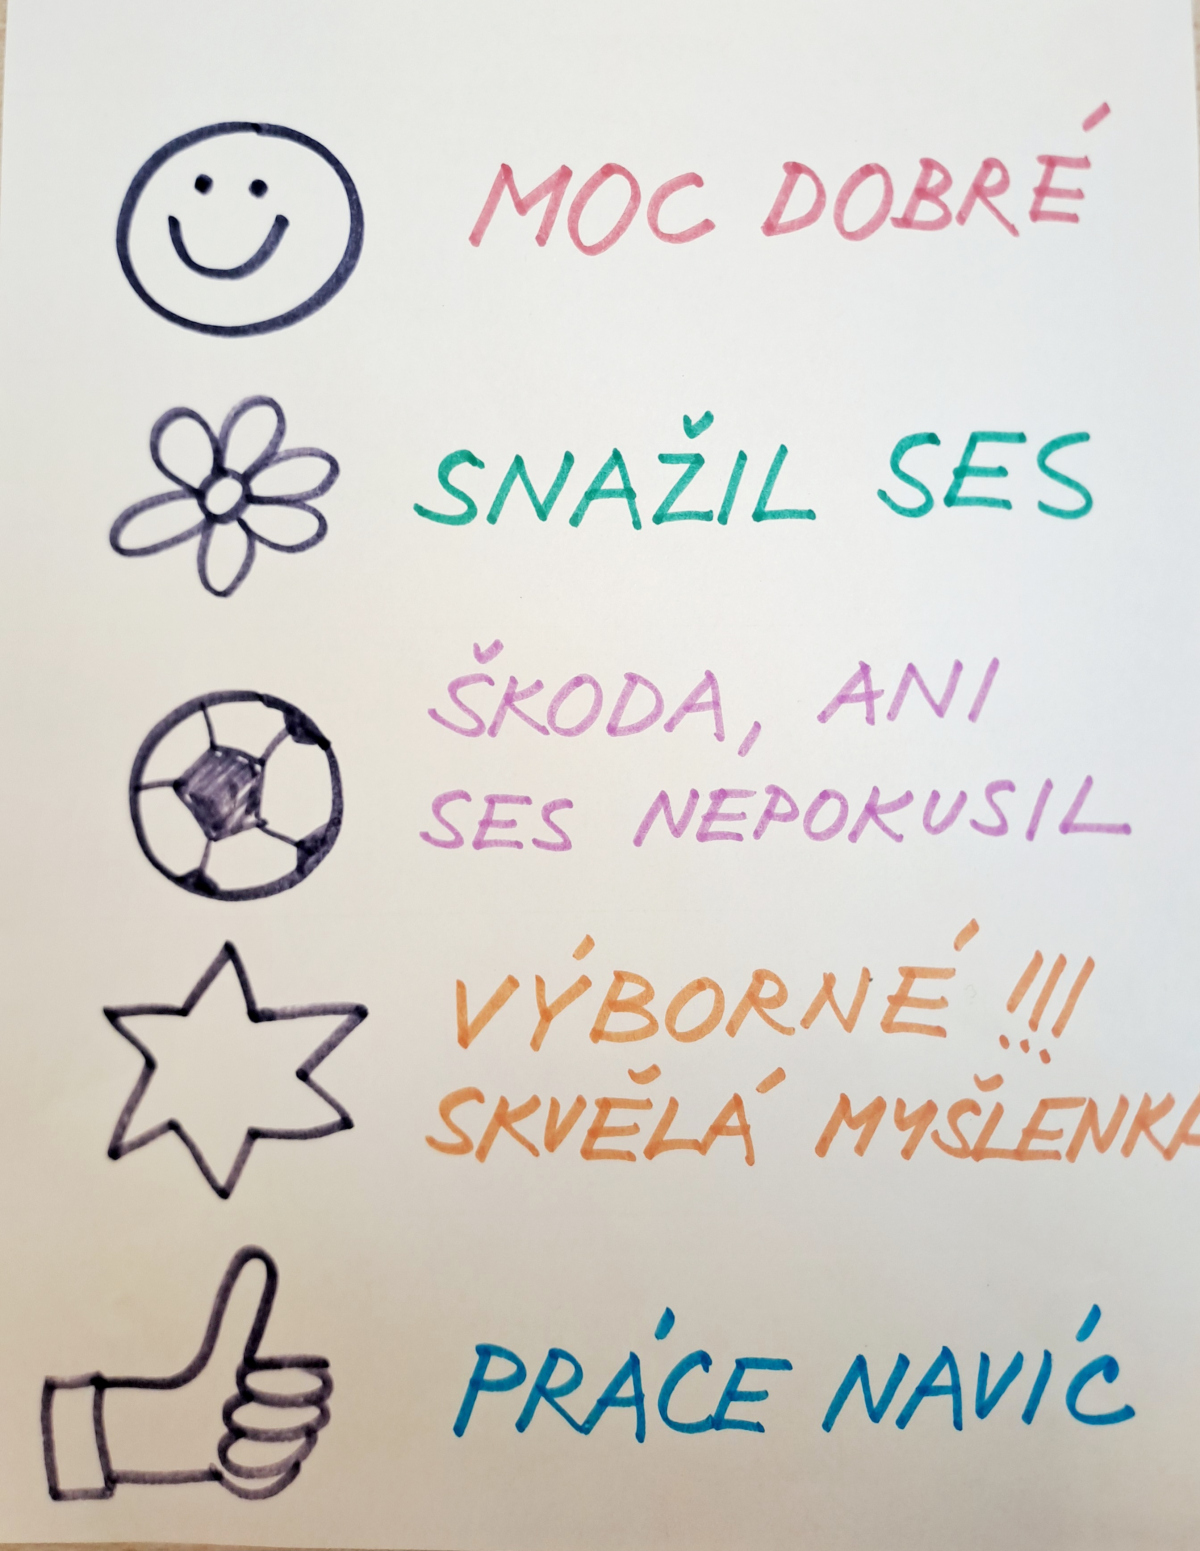 MOC DOBRÉ
SNAŽIL SES
ŠKODA, ANI
SES NEPOKUSIL
VÝBORNÉ !!!
SKVĚLÁ MYŠLENKA
PRÁCE NAVÍC